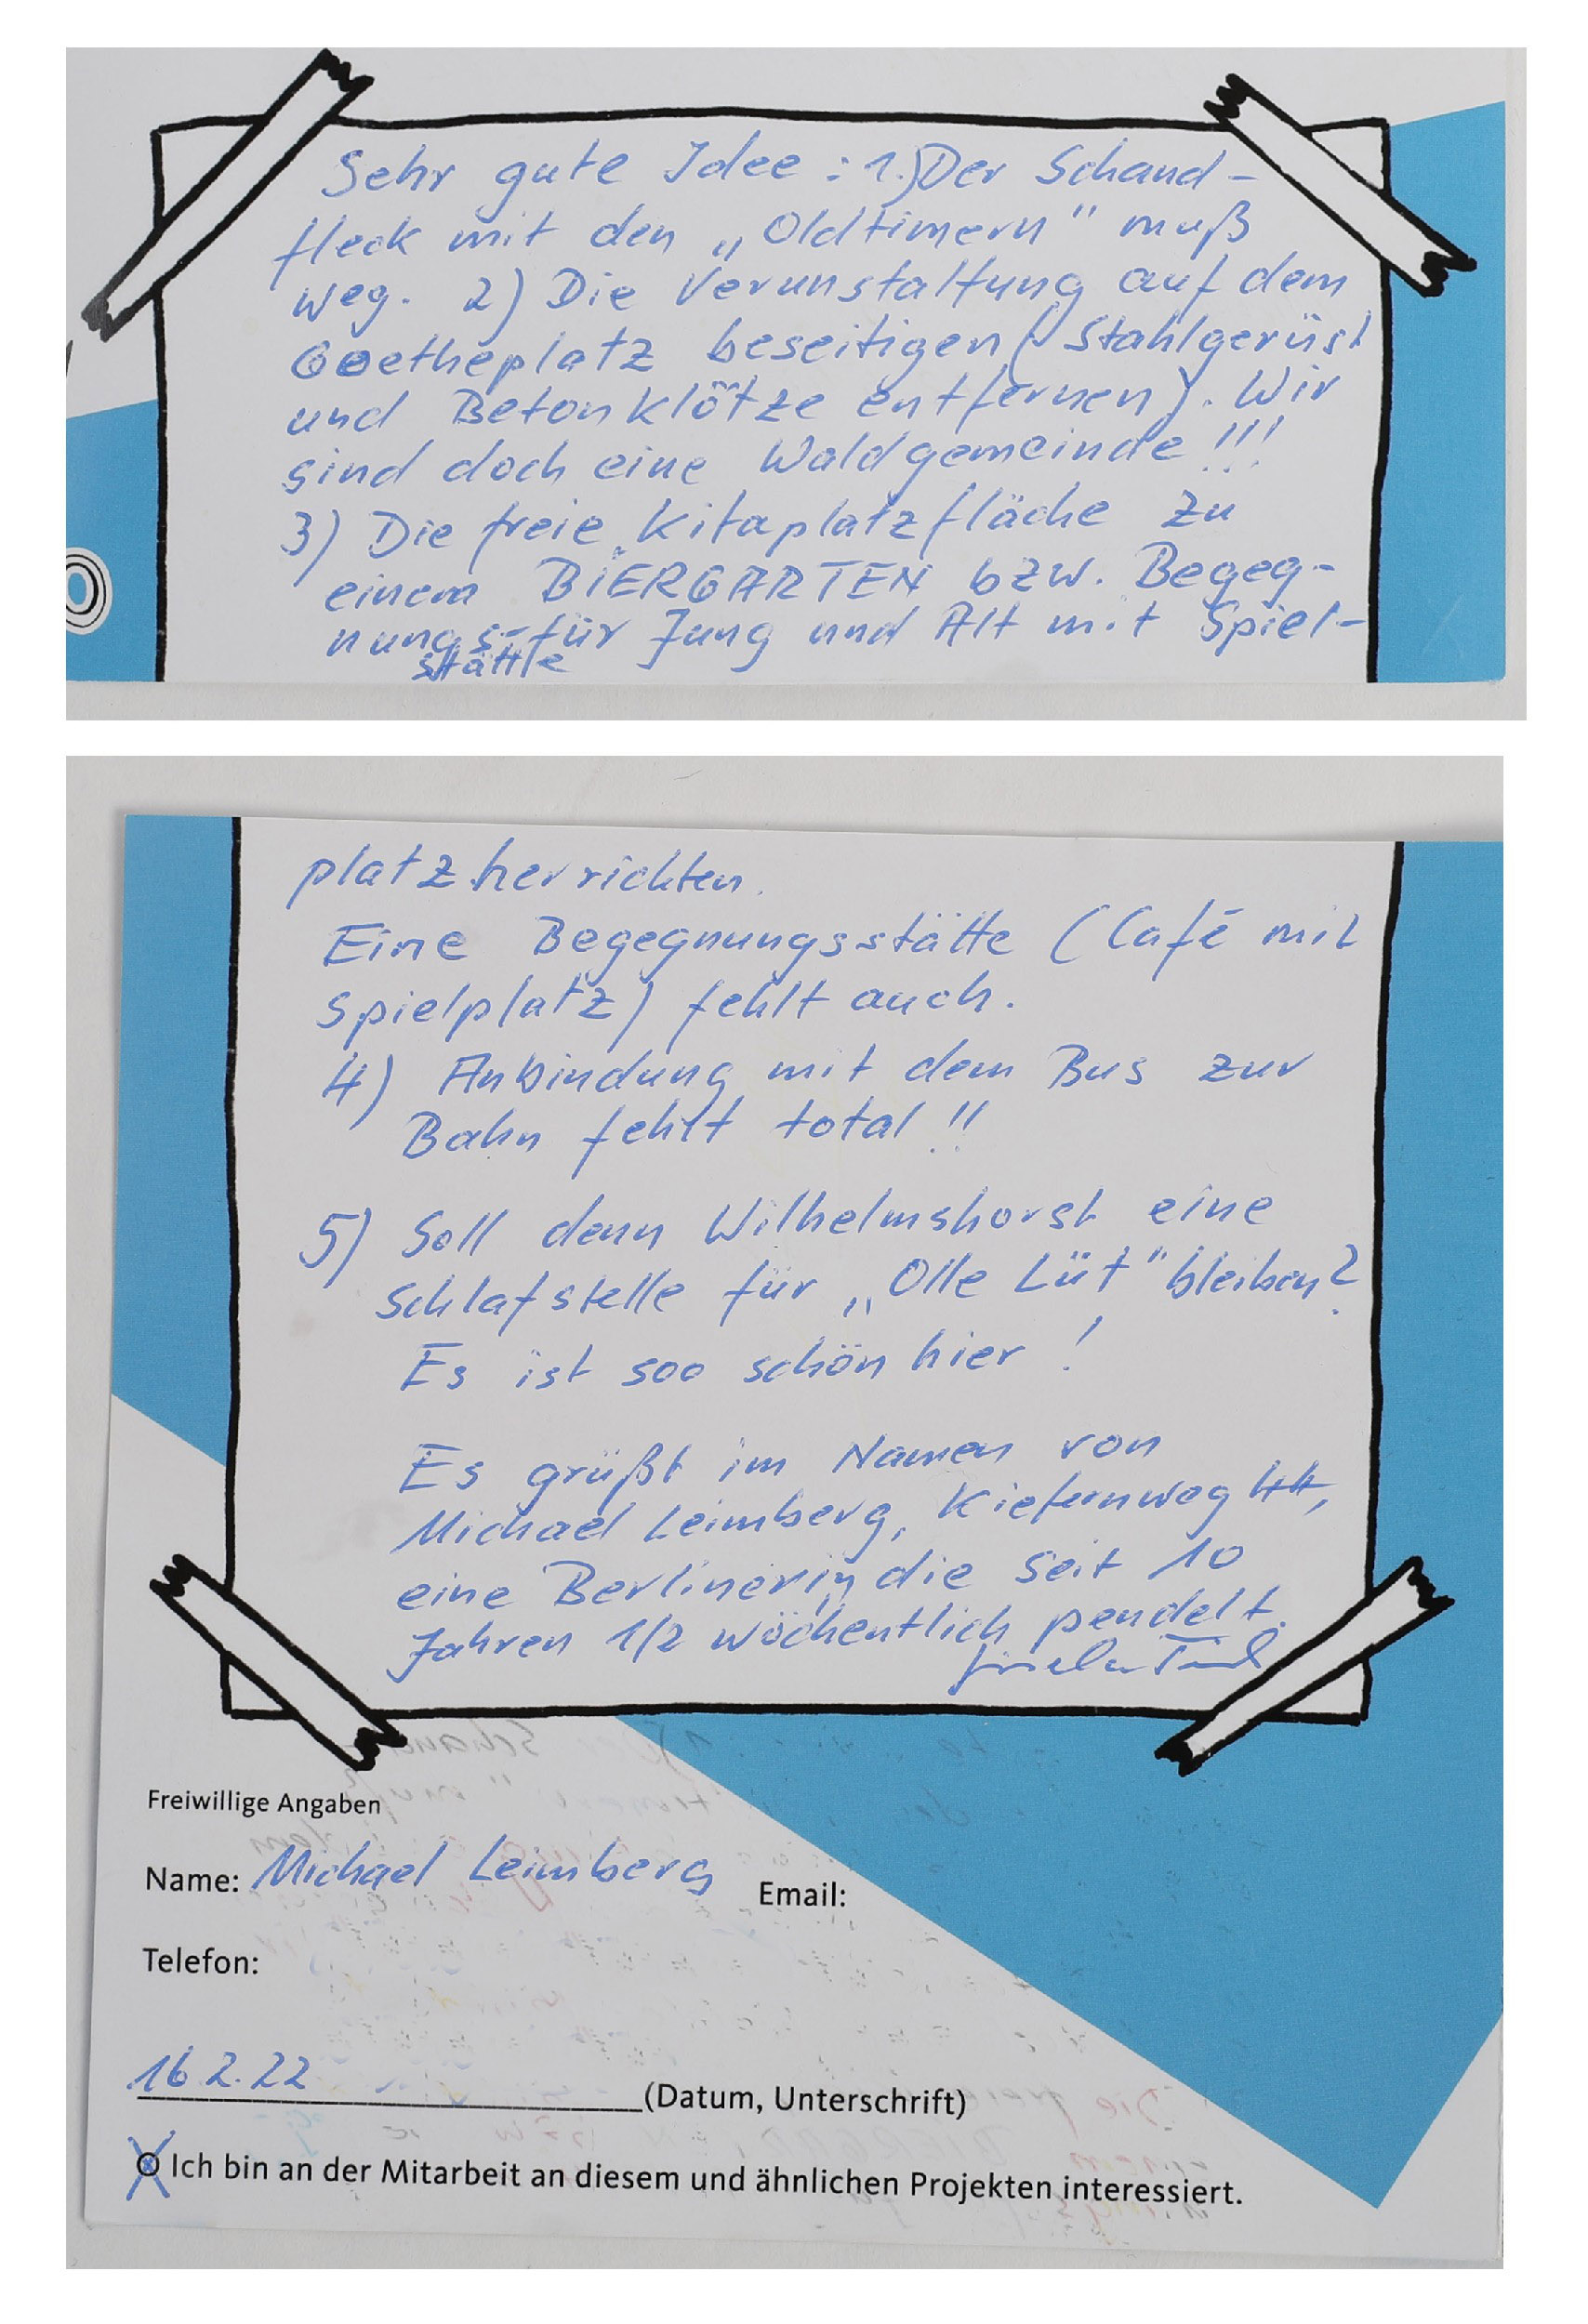 Sehr gute Idee : 1.) Der Schand-
fleck mit den „Oldtimern" muß
weg. 2) Die Verunstaltung auf dem
Goetheplatz beseitigen (Stahlgerüst
und Betonklötze entfernen). Wir
sind doch eine Waldgemeinde !!!
3) Die freie Kitaplatzfläche zu
einem BIERGARTEN bzw. Begeg-
nungs-für Jung und Alt mit Spiel-
stätte
platz herrichten.
Eine Begegnungsstätte (Café mit
Spielplatz) fehlt auch.
4) Anbindung mit dem Bus zur
Bahn fehlt total !!
5) Soll denn Wilhelmshorst eine
Schlafstelle für „Olle Lüt" bleiben?
Es ist soo schön hier !
Es grüßt im Namen von
Michael Leimberg, Kiefernweg 44,
eine Berlinerin, die seit 10
Jahren 1/2 wöchentlich pendelt.
Freiwillige Angaben
Name: Michael Leimberg Email:
Telefon:
16.2.22 (Datum, Unterschrift)
O Ich bin an der Mitarbeit an diesem und ähnlichen Projekten interessiert.